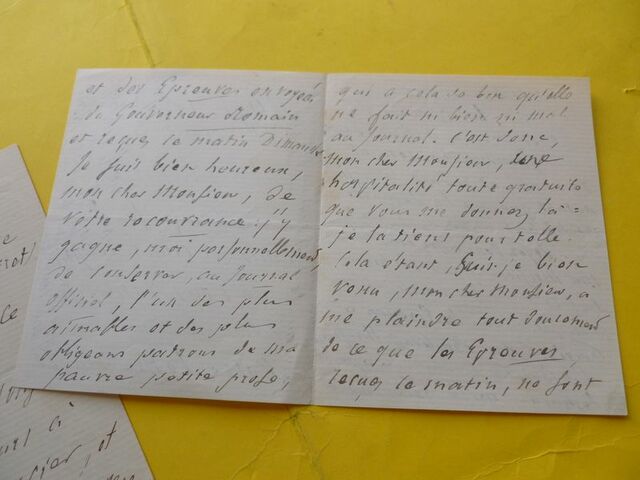 et des Epreuves envoyées
du Gouverneur Romain
et reçues le matin Dimanche
Je suis bien heureux,
mon cher Monsieur, de
votre recouvrance. J'y
gagne, moi personnellement,
de conserver, au Journal
officiel, l'un des plus
aimables et des plus
obligeans patrons de ma
pauvre petite prose,
qui a cela de bon qu'elle
ne fait ni bien ni mal
au Journal. C'est donc,
mon cher Monsieur, une
hospitalité toute gratuite
que vous me donnez là =
je la tiens pour telle.
Cela étant, suis-je bien
venu, mon cher Monsieur, à
me plaindre tout doucement
de ce que les Epreuves
reçues le matin, ne sont
ce
à
et